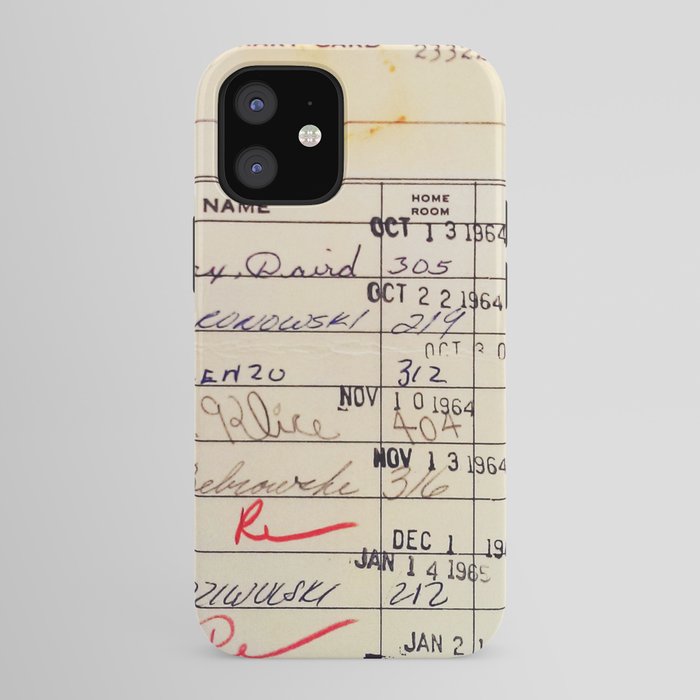 CARD 2332
NAME HOME ROOM
OCT 1 3 1964
David 305
OCT 2 2 1964
RONOWSKI 219
OCT 3 0
ENZO 312
NOV 1 0 1964
404
NOV 1 3 1964
316
Re
DEC 1 19
JAN 1 4 1965
ZIWULSKI 212
Re
JAN 2 1